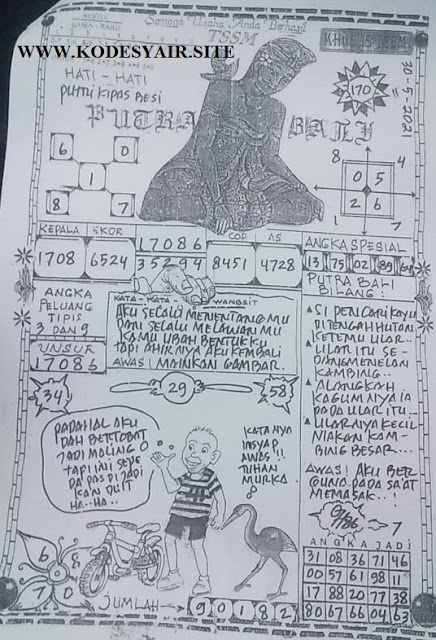 Semoga Usaha Anda Berhasil
TSSM
WWW.KODESYAIR.SITE
KHUSUS TSSM
30-5-2021
HATI - HATI
PUTRI KIPAS BESI
PUTRA BALI
170
6 0
1
8 7
8 4
0 5
2 6
1 7
KEPALA EKOR
1708 6524
17086
35294
COP AS
8451 4728
ANGKA SPESIAL
13 75 02 89 64
ANGKA
PELUANG
TIPIS
3 DAN 9
UNSUR
17086
KATA - KATA WANGSIT
AKU SELALU MENENTANGMU
DAN SELALU MELAWANMU
KAMU UBAH BENTUKKU
TAPI AHIRNYA AKU KEMBALI
AWAS! MAINKAN GAMBAR.
PUTRA BALI
BILANG:
SI PENCARI KAYU
DITENGAH HUTAN
KETEMU ULAR..
ULAR ITU SE-
DANG MENELAN
KAMBING..
ALANGKAH
KAGUMNYA IA
PADA ULAR ITU..
ULARNYA KECIL
NIAKAN KAM-
BING BESAR...
AWAS! AKU BER
GUNA PADA SAAT
MEMASAK..!
34
29
58
PADAHAL AKU
DAH BERTOBAT
JADI MALING
TAPI INI SEPE
DA PAS DI JADI
KAN DUIT
HA-HA..
KATANYA
INSYAP
AWAS!!
TUHAN
MURKA
6 8
7 0
7
ANGKA JADI
31 08 36 71 46
00 57 61 98 11
17 88 20 77 38
80 67 66 04 63
JUMLAH → 9 0 1 8 2